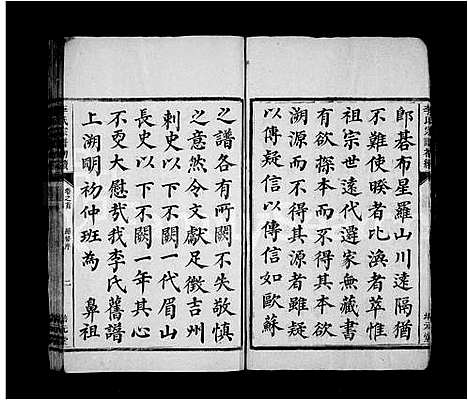 郎碁布星羅山川遠隔猶
不難使暌者比渙者萃惟
祖宗世遠代遷家無藏書
有欲探本而不得其本欲
溯源而不得其源者雖疑
以傳疑信以傳信如歐蘇
之譜各有所闕不失敬慎
之意然令文獻足徵吉州
刺史以下不闕一代眉山
長史以下不闕一年其心
不更大慰哉我李氏舊譜
上溯明初仲班為 鼻祖
李氏宗譜
卷之首
二